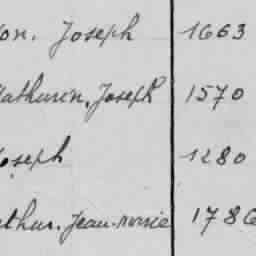 on. Joseph 1663
Mathurin, Joseph 1570
Joseph 1280
athur. Jean-marie 1786